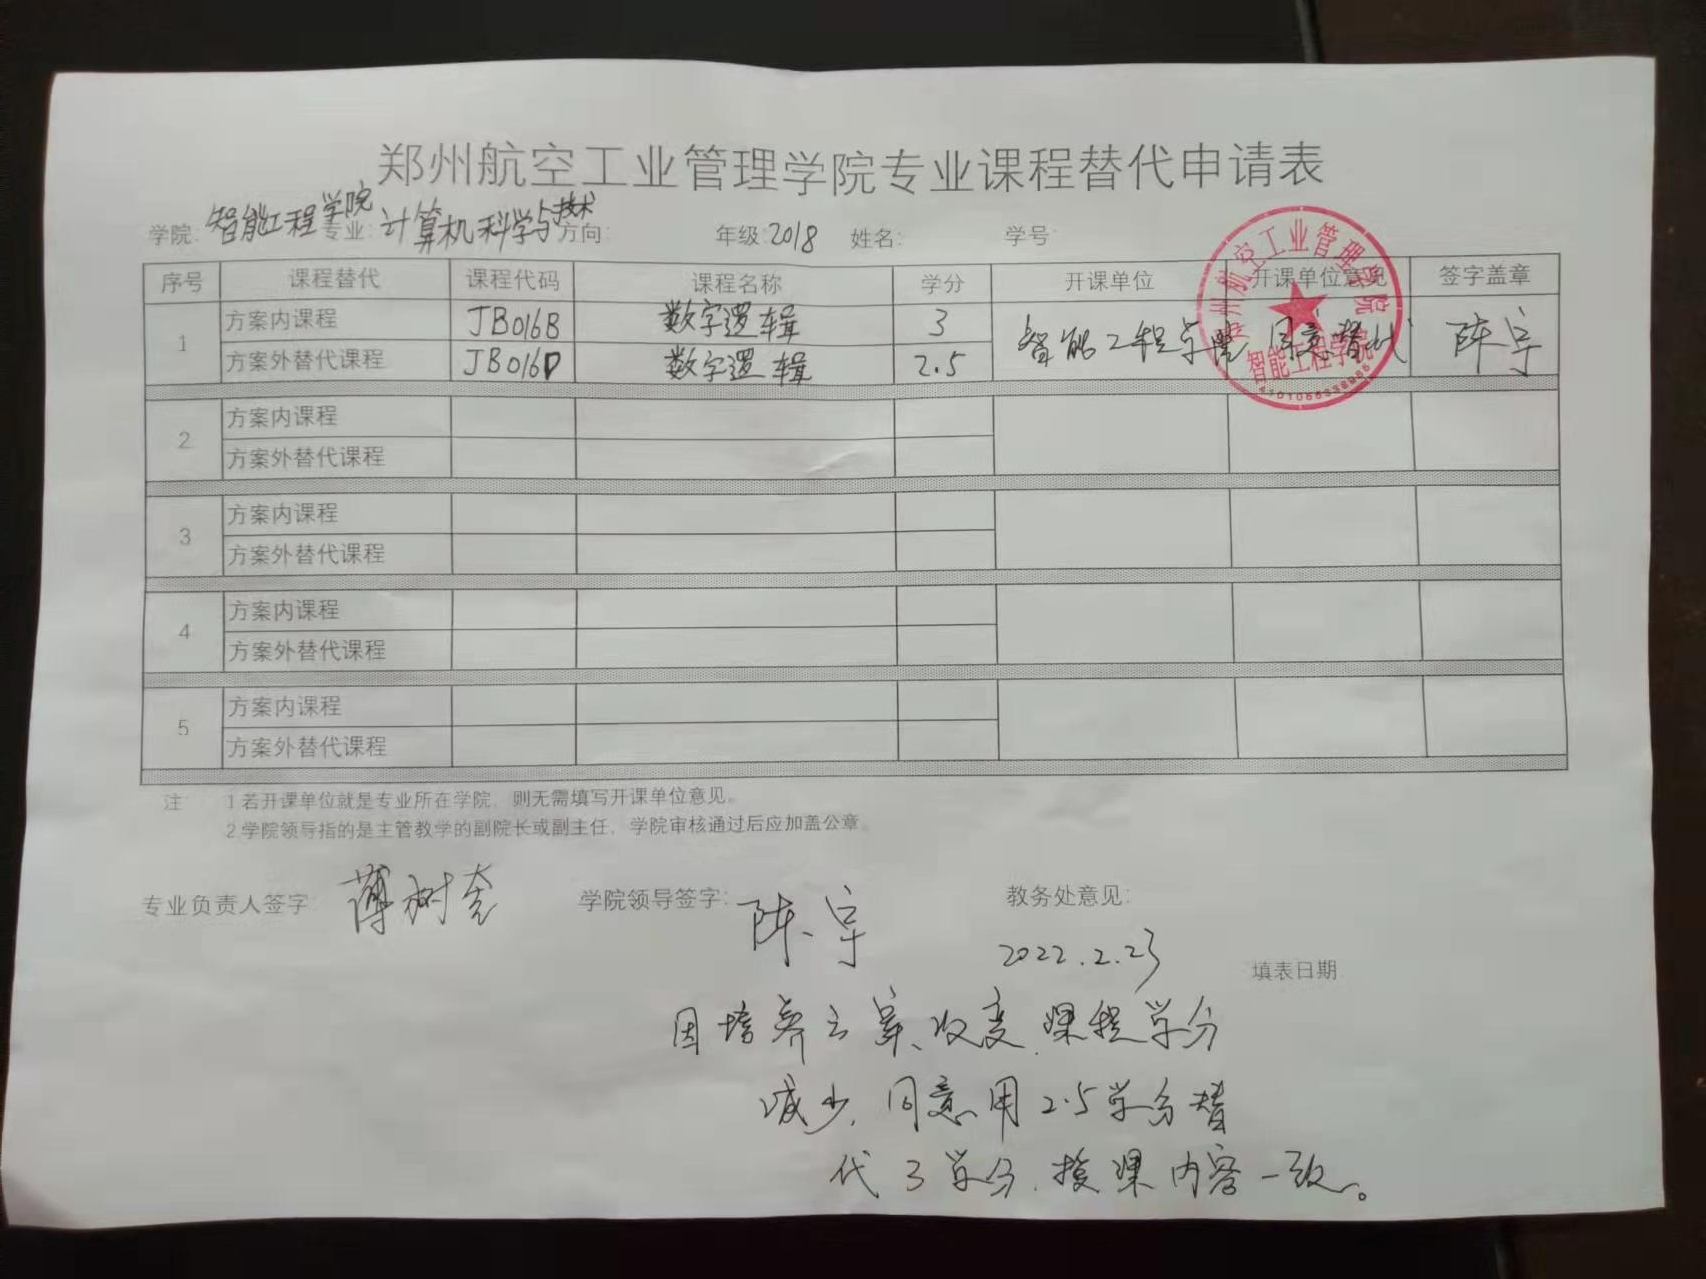 郑州航空工业管理学院专业课程替代申请表
学院: 智能工程学院 专业: 计算机科学与技术 方向: 年级: 2018 姓名: 学号:
序号 课程替代 课程代码 课程名称 学分 开课单位 开课单位意见 签字盖章
1 方案内课程 JB016B 数字逻辑 3 智能工程学院 同意替代 陈宇
方案外替代课程 JB016D 数字逻辑 2.5
郑州航空工业管理学院
智能工程学院
2 方案内课程
方案外替代课程
3 方案内课程
方案外替代课程
4 方案内课程
方案外替代课程
5 方案内课程
方案外替代课程
注: 1 若开课单位就是专业所在学院, 则无需填写开课单位意见。
2.学院领导指的是主管教学的副院长或副主任, 学院审核通过后应加盖公章。
专业负责人签字: 薄树奎 学院领导签字: 陈宇 教务处意见:
2022.2.23 填表日期
因培养方案改变,课程学分
减少,同意用2.5学分替
代3学分,授课内容一致。